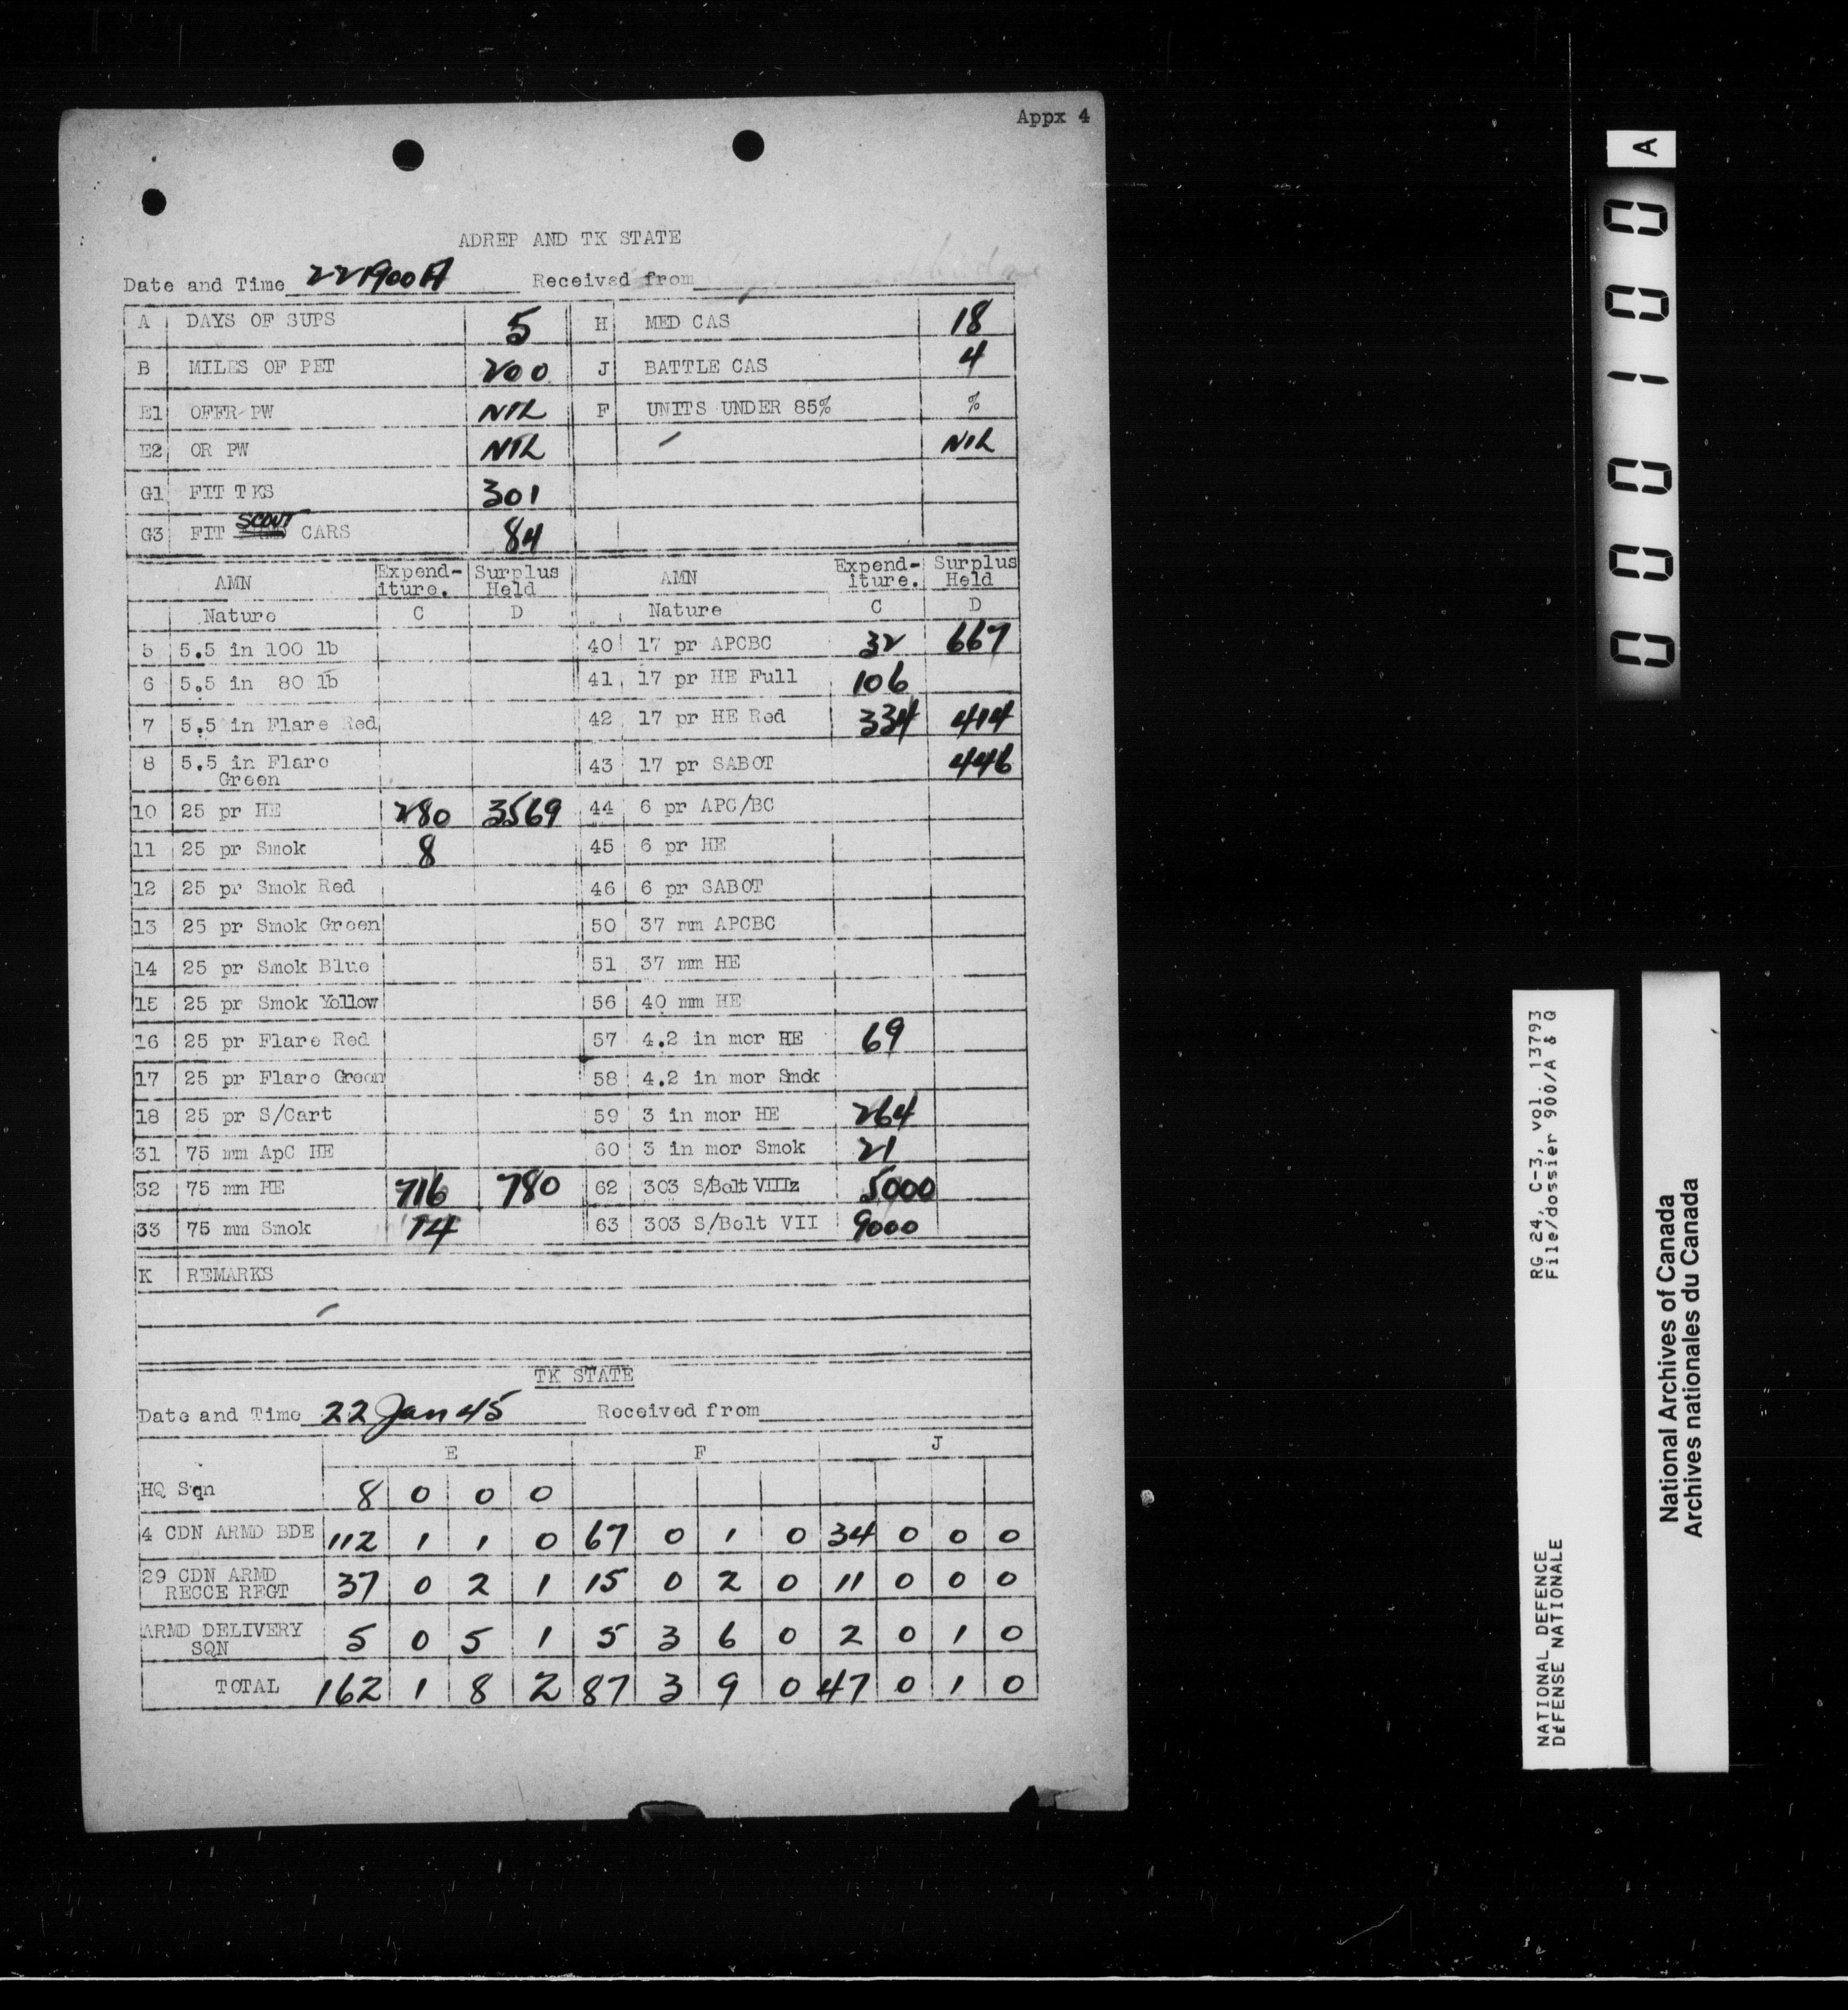 Appx 4
ADREP AND TK STATE
Date and Time 221900A Received from
A DAYS OF SUPS 5 H MED CAS 18
B MILES OF PET 200 J BATTLE CAS 4
E1 OFFR PW NIL F UNITS UNDER 85% %
E2 OR PW NIL NIL
G1 FIT TKS 301
G3 FIT SCOUT CARS 84
AMN Expend-iture. Surplus Held AMN Expend-iture. Surplus Held
Nature C D Nature C D
5 5.5 in 100 lb 40 17 pr APCBC 32 667
6 5.5 in 80 lb 41 17 pr HE Full 106
7 5.5 in Flare Red 42 17 pr HE Red 334 414
8 5.5 in Flare Green 43 17 pr SABOT 446
10 25 pr HE 280 3569 44 6 pr APC/BC
11 25 pr Smok 8 45 6 pr HE
12 25 pr Smok Red 46 6 pr SABOT
13 25 pr Smok Green 50 37 mm APCBC
14 25 pr Smok Blue 51 37 mm HE
15 25 pr Smok Yellow 56 40 mm HE
16 25 pr Flare Red 57 4.2 in mor HE 69
17 25 pr Flare Green 58 4.2 in mor Smok
18 25 pr S/Cart 59 3 in mor HE 264
31 75 mm ApC HE 60 3 in mor Smok 21
32 75 mm HE 716 780 62 303 S/Belt VIIIz 5000
33 75 mm Smok 14 63 303 S/Belt VII 9000
K REMARKS
TK STATE
Date and Time 22 Jan 45 Received from
E F J
HQ Sqn 8 0 0 0
4 CDN ARMD BDE 112 1 1 0 67 0 1 0 34 0 0 0
29 CDN ARMD RECCE REGT 37 0 2 1 15 0 2 0 11 0 0 0
ARMD DELIVERY SQN 5 0 5 1 5 3 6 0 2 0 1 0
TOTAL 162 1 8 2 87 3 9 0 47 0 1 0
0000100 A
RG 24, C-3, vol. 13793
File/dossier 900/A & Q
NATIONAL DEFENCE
DÉFENSE NATIONALE
National Archives of Canada
Archives nationales du Canada